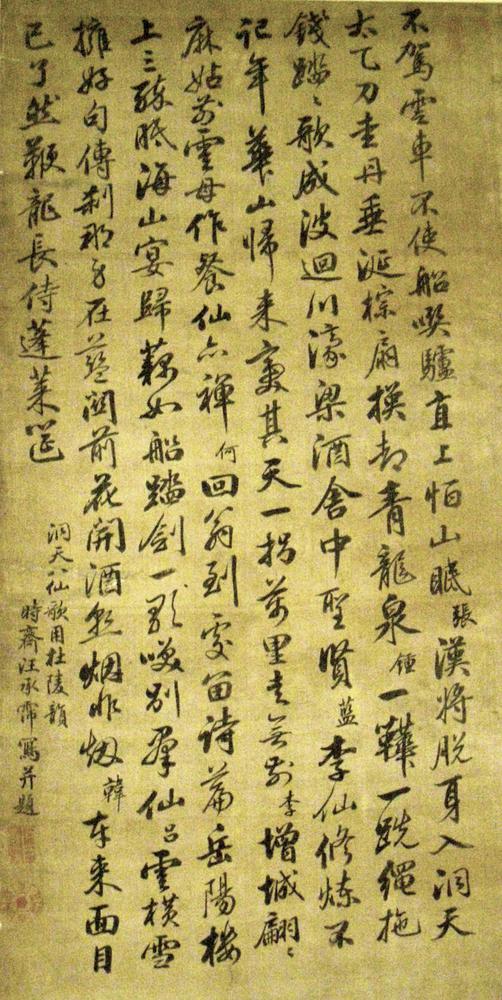 不駕雲車不使船噀驢直上恒山眠張漢將脫身入洞天
太乙刀圭丹垂涎棕扇換却青龍泉鍾一鞾一跣繩拖
錢踏〻歌成波迴川濠梁酒舍中聖賢藍李仙修煉不
記年華山歸來喪其天一拐萬里走無前李增城翩〻
麻姑前雲母作餐仙亦禪何回翁到處留詩篇岳陽樓
上三醉眠海山宴歸藕如船踏劍一別羣仙呂雲橫雪
擁好句傳刹那身在藍關前花開酒熟烟非烟韓本來面目
已了然鞭龍長侍蓬萊筵
洞天八仙歌用杜陵韻
時齋汪承霈寫并題